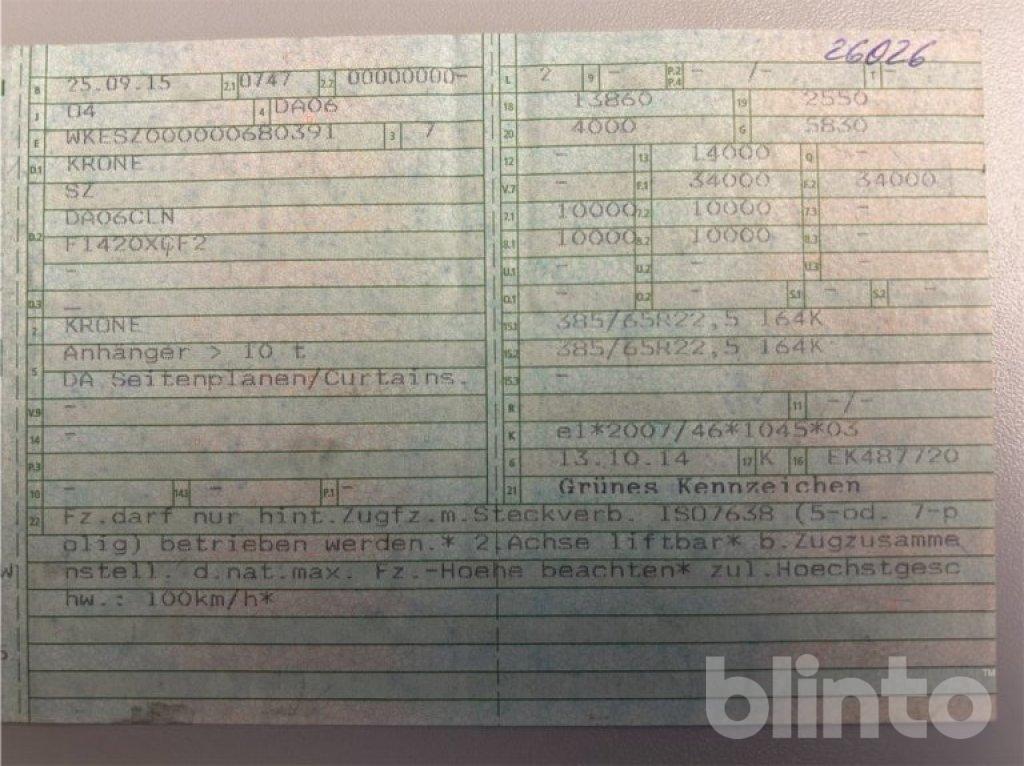 26026
B 25.09.15 2.1 0747 2.2 00000000-
J 04 4 DA06
E WKESZ000000680391 3 7
D.1 KRONE
SZ
DA06CLN
D.2 F1420XCF2
-
D.3 -
2 KRONE
Anhänger > 10 t
5 DA Seitenplanen/Curtains.
V.9 -
14 -
P.3
10 - 14.1 - P.1 -
L 2 9 - P.2 P.4 - /- T -
18 13860 19 2550
20 4000 G 5830
12 - 13 14000 Q -
V.7 - F.1 34000 F.2 34000
7.1 10000 7.2 10000 7.3 -
8.1 10000 8.2 10000 8.3 -
U.1 - U.2 - U.3 -
O.1 - O.2 - S.1 - S.2 -
15.1 385/65R22,5 164K
15.2 385/65R22,5 164K
15.3 -
R 11 -/-
K e1*2007/46*1045*03
6 13.10.14 17 K 16 EK487720
21 Grünes Kennzeichen
22 Fz.darf nur hint.Zugfz.m.Steckverb. ISO7638 (5-od. 7-p
olig) betrieben werden.* 2.Achse liftbar* b.Zugzusamme
nstell. d.nat.max. Fz.-Hoehe beachten* zul.Hoechstgesc
hw.: 100km/h*
TM
blinto